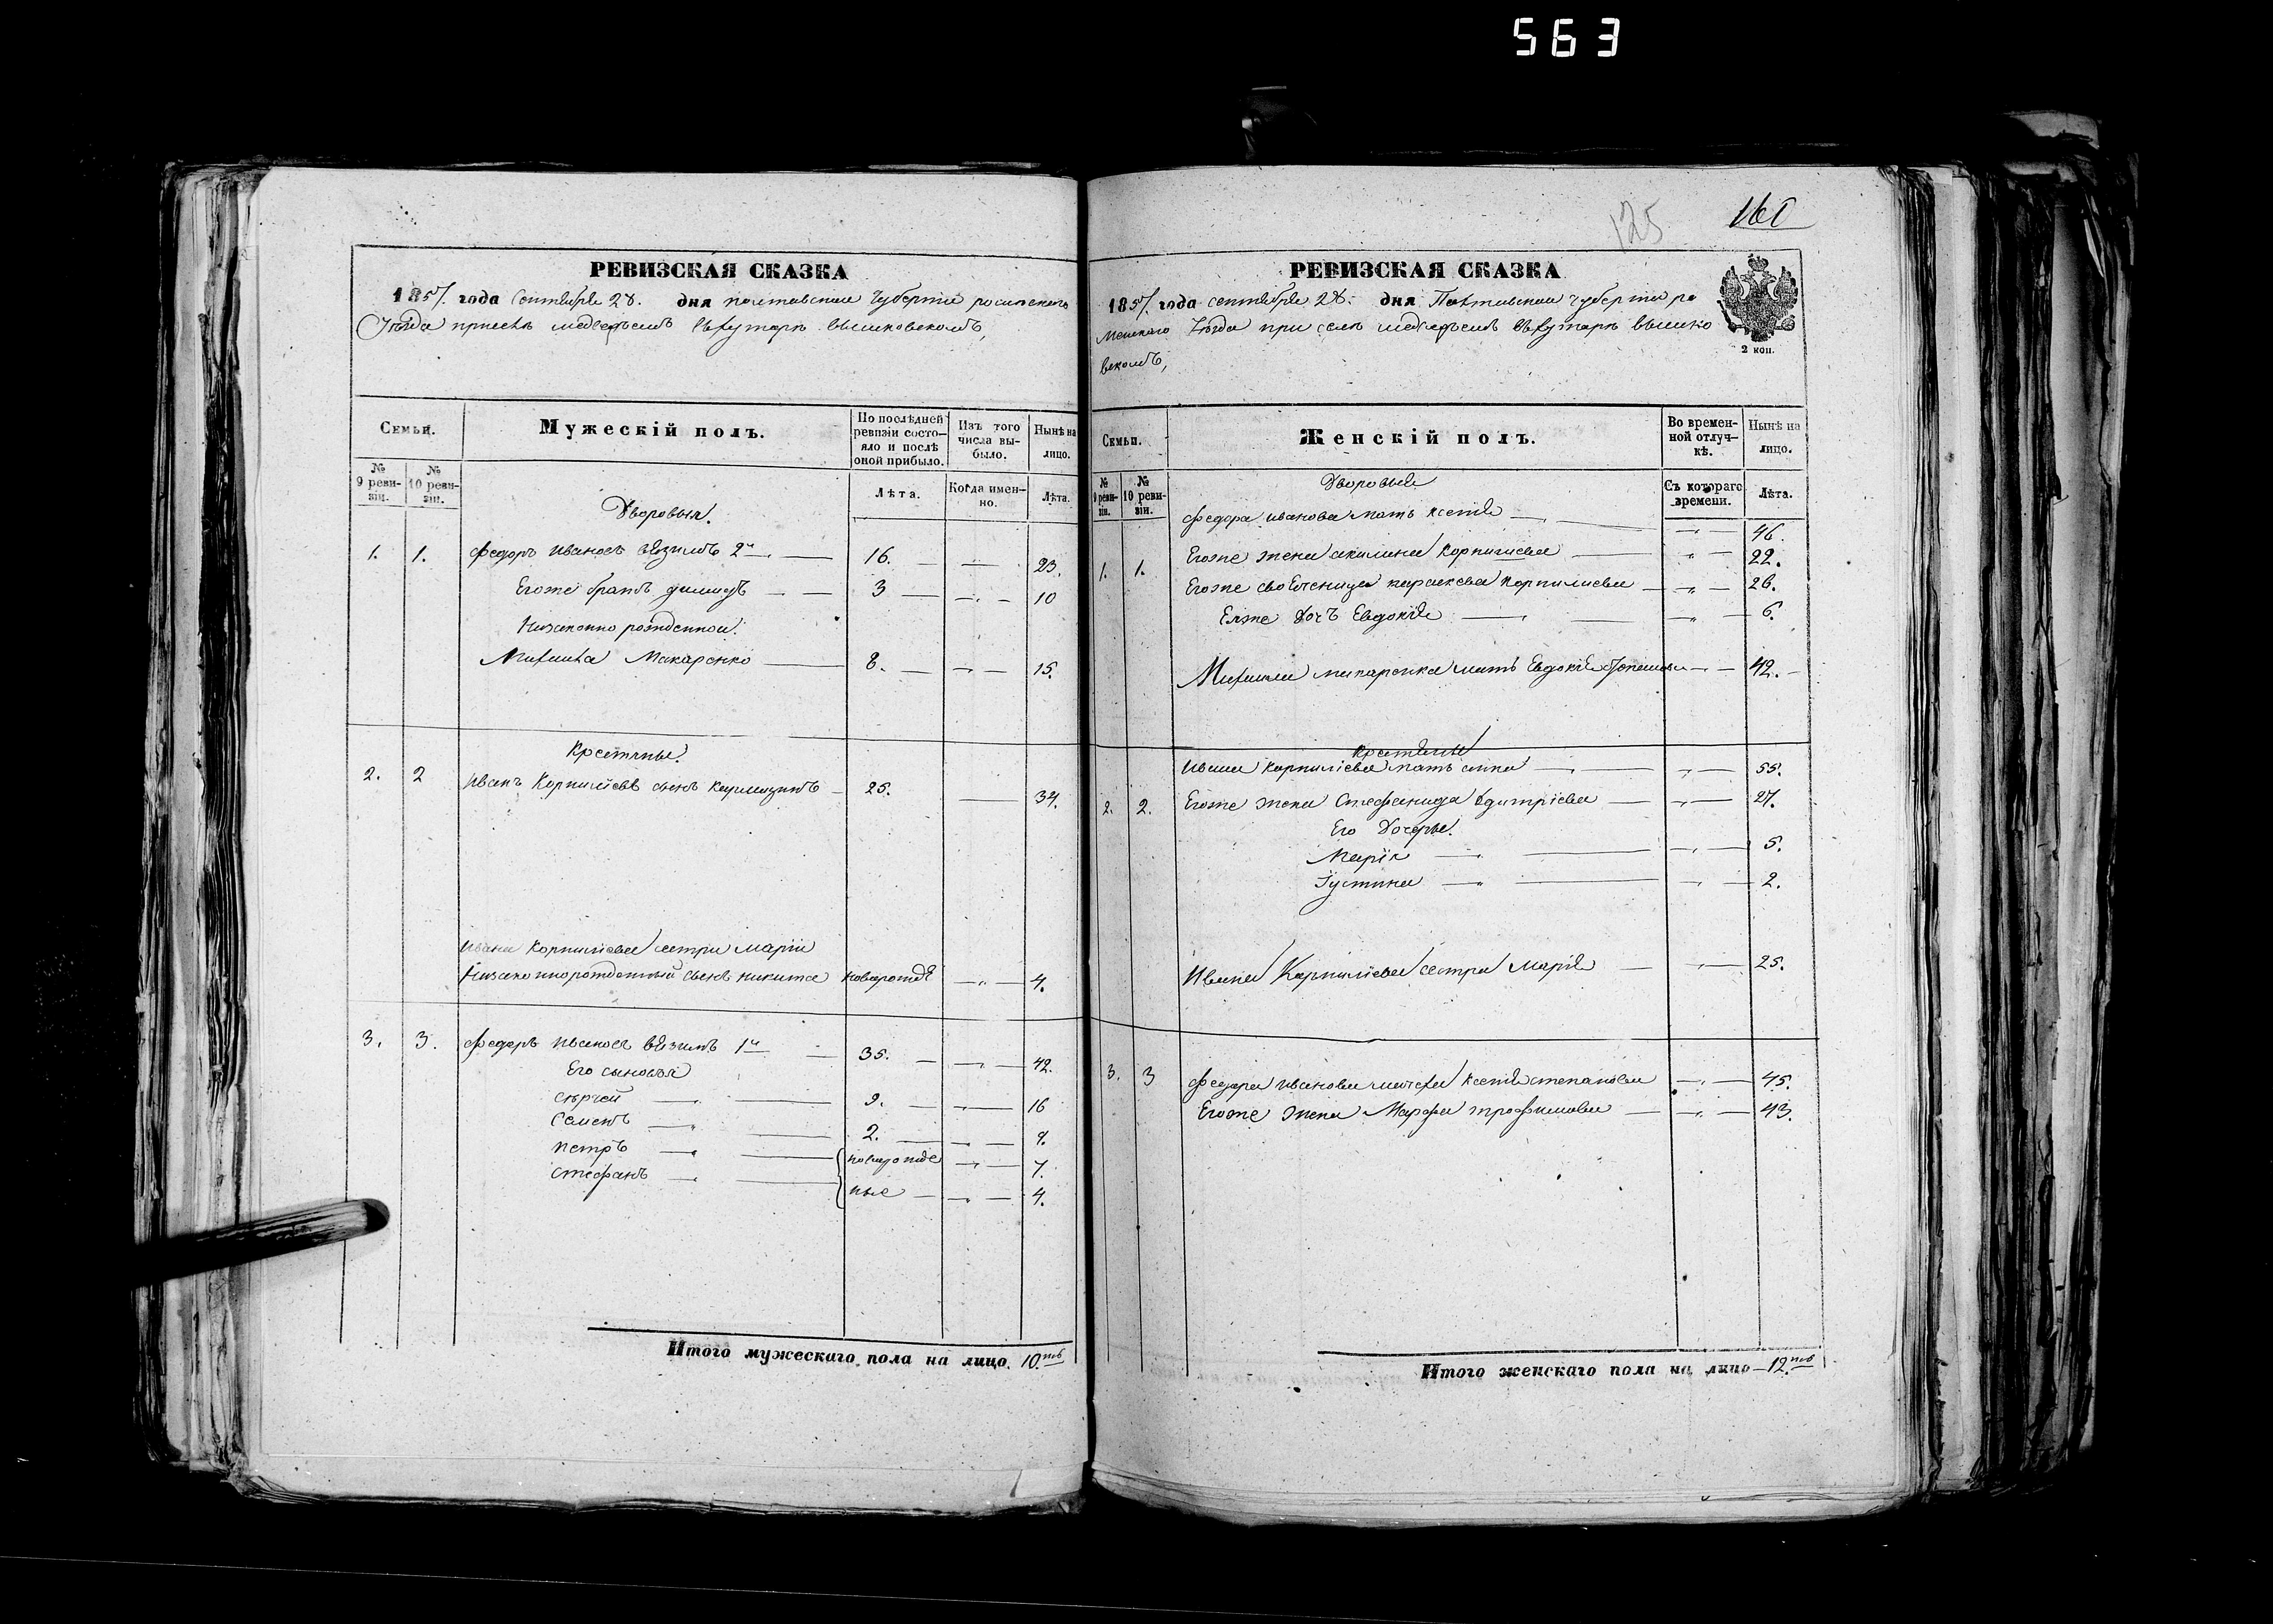 563
РЕВИЗСКАЯ СКАЗКА
1857. года Сентября 28. дня полтавской губернии роменского
Уезда приселе медвежем вхуторе вешковском,
Семьи.
Мужескій полъ.
По послѣдней ревизіи состояло и послѣ оной прибыло.
Изъ того числа выбыло.
Нынѣ на лицо.
№ 9 ревизіи.
№ 10 ревизіи.
Лѣта.
Когда именно.
Лѣта.
Дворовыя.
1. 1. федоръ ивановъ 2й 16. 23.
Егоже братъ 3 10
Незаконно рожденной:
Михаила Макаренко 8. 15.
Крестяне.
2. 2 Иванъ Корнилієвъ сынъ 25. 34.
Ивана Корнилієва сестри Маріи
Незаконнорожденный сынъ никита новорожде 4.
3. 3. федоръ ивановъ 1й 35. 42.
Его сыновья
сергей 9. 16
Семенъ 2. 9.
петръ новорожде 7.
стефанъ ные 4.
Итого мужескаго пола на лицо. 10.ть
125
160
РЕВИЗСКАЯ СКАЗКА
1857. года сентября 28. дня Полтавской губернии ро
менского Уезда при селе медвежем вхуторе вешко
вском,
2 коп.
Семьи.
Женскій полъ.
Во временной отлучкѣ.
Нынѣ на лицо.
№ 9 ревизіи.
№ 10 ревизіи.
Съ котораго времени.
Лѣта.
Дворовые
федора иванова мать ксения 46.
1. 1. Егоже жена акилина Корнилиева 22.
Егоже своячница параскева Корнилиева 26.
Еяже дочъ Евдокія 6.
Михаила макаренка мать Евдокія 42.
Крестяне
Ивана корнилієва мать анна 55.
2. 2. Егоже жена Стефанида дмитріева 27.
Его дочери.
Марія 5.
Іустина 2.
Ивана Корнилієва сестра Марія 25.
3. 3 федора иванова мачеха Ксения степанова 45.
Егоже жена Марфа трофимова 43.
Итого женскаго пола на лицо 12.ть